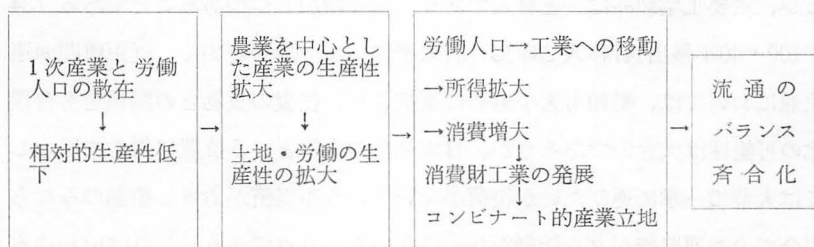 1次産業と労働
人口の散在
↓
相対的生産性低
下
→
農業を中心とし
た産業の生産性
拡大
↓
土地・労働の生
産性の拡大
→
労働人口→工業への移動
→所得拡大
→消費増大
↓
消費財工業の発展
└→
コンビナート的産業立地
→
流通の
バランス
斉合化